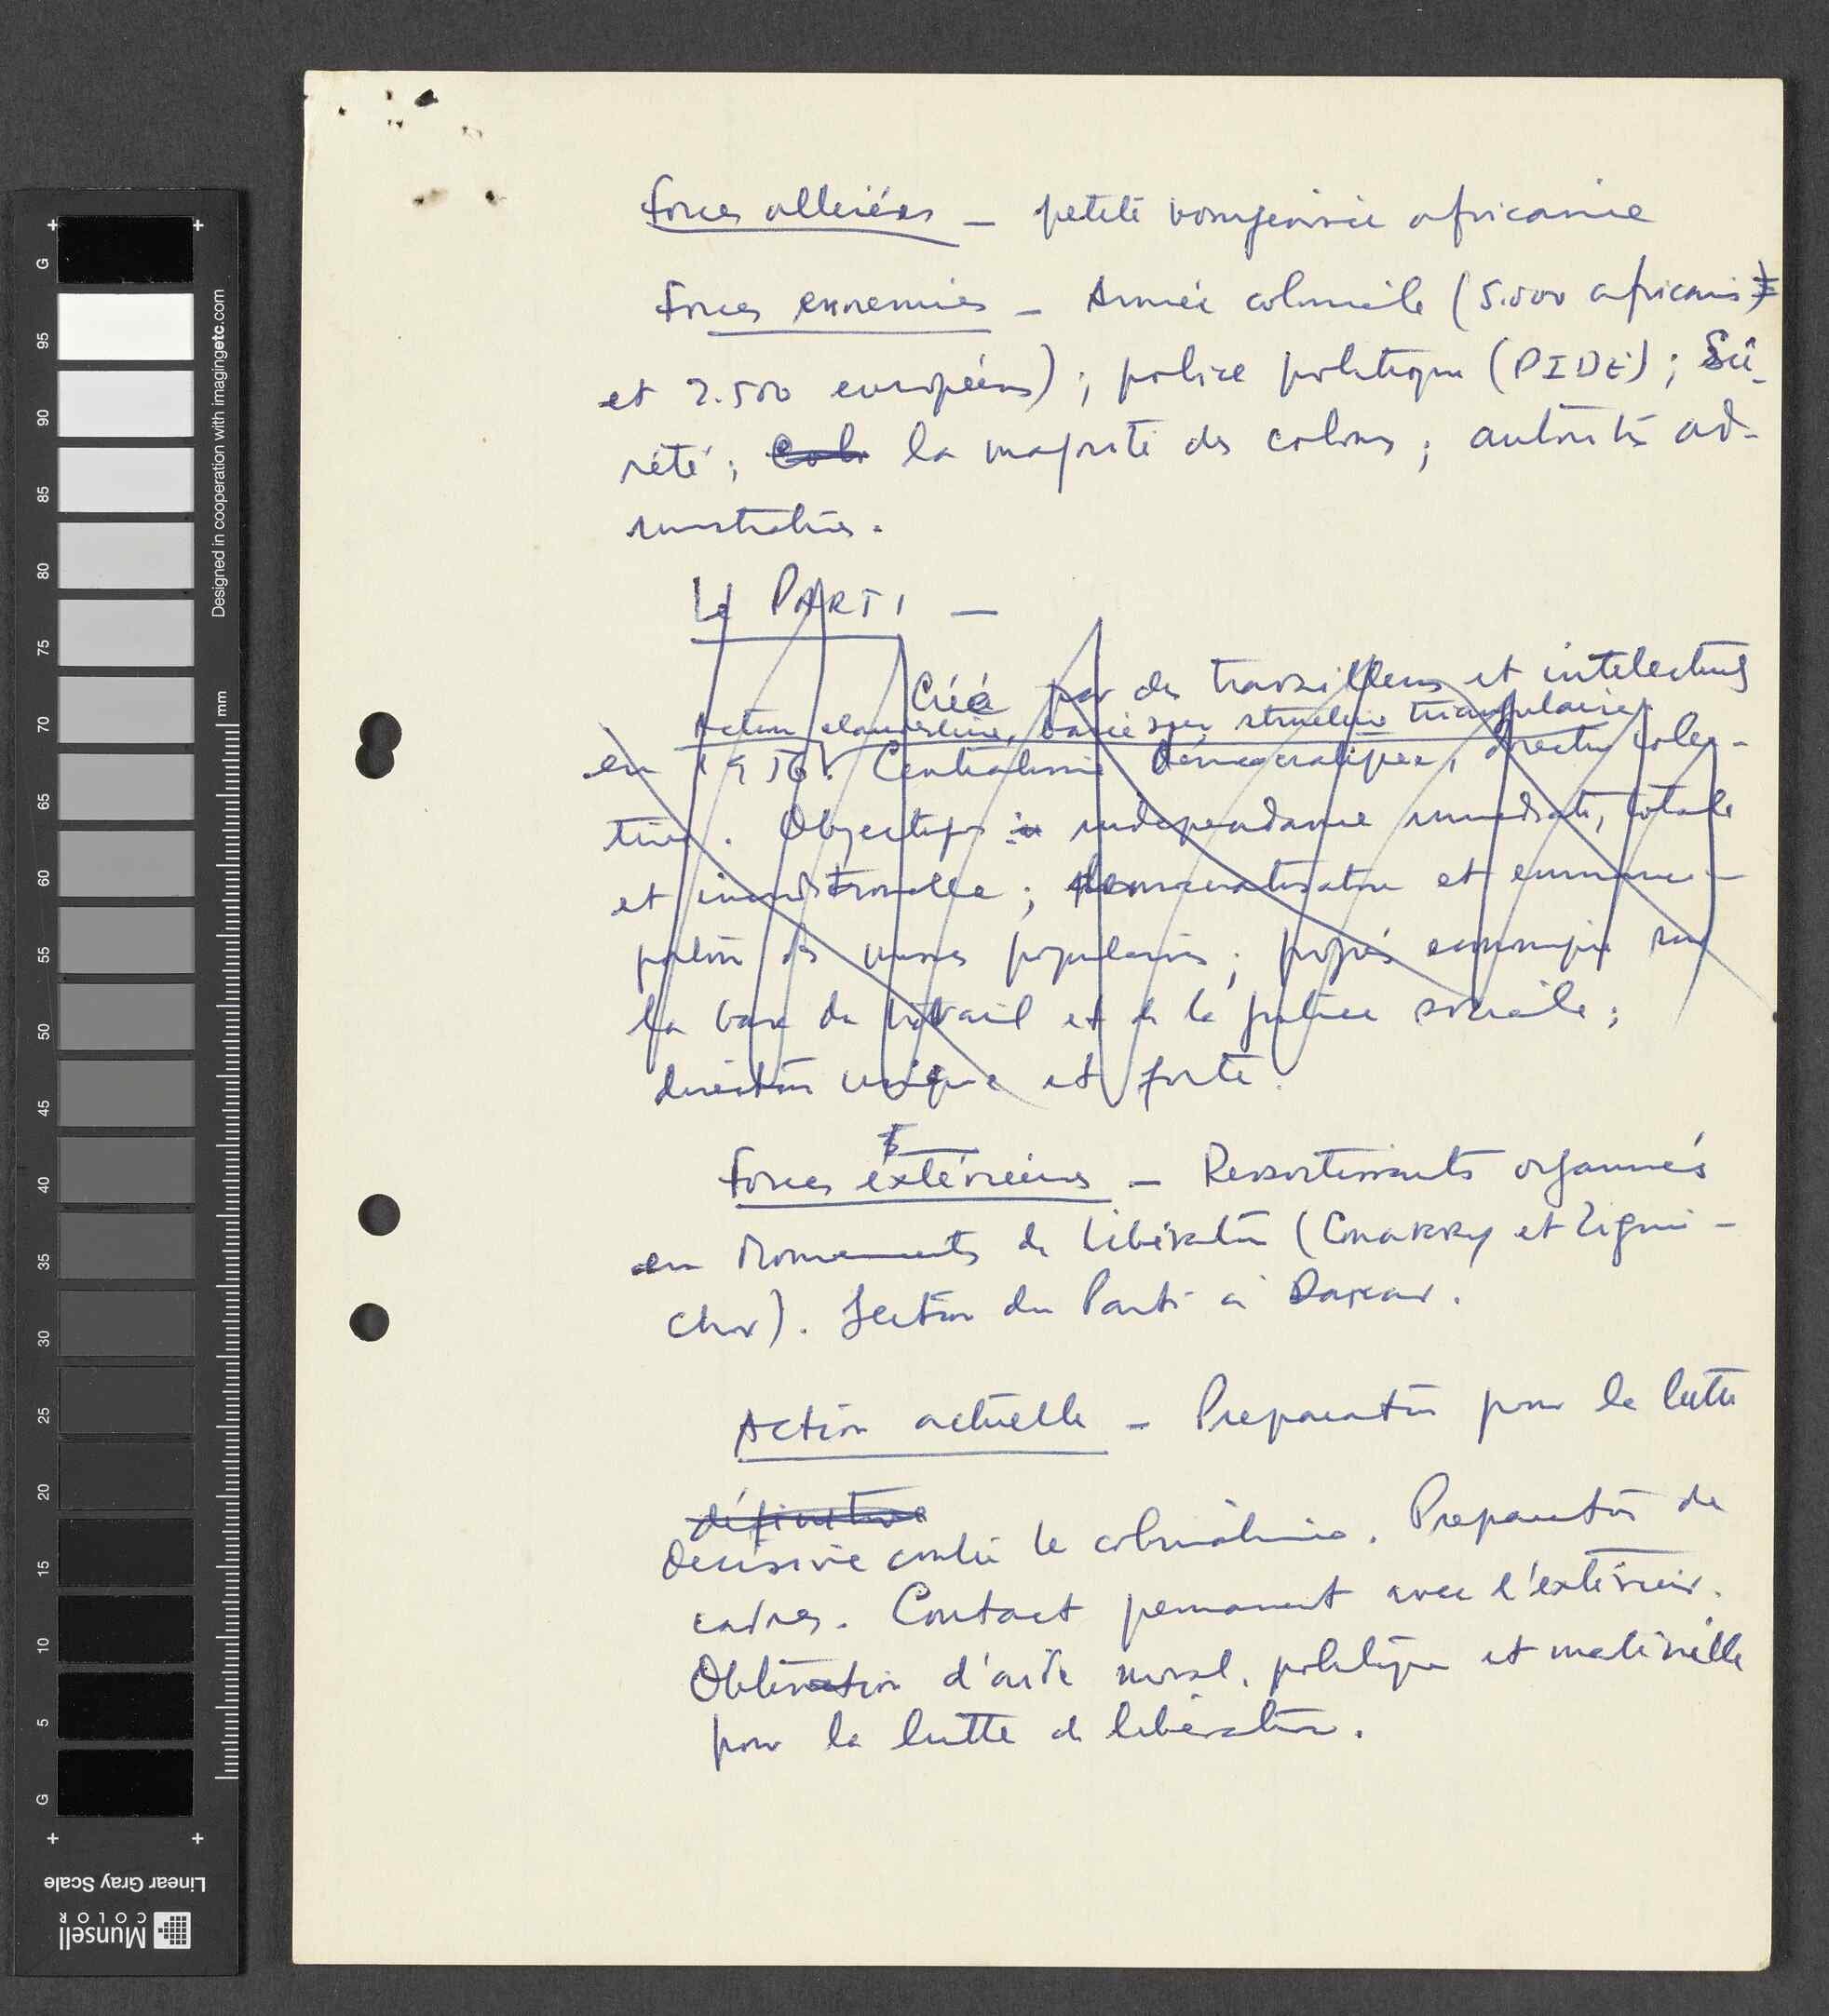 Forces alliéées — petite bourgeoisie africaine
Forces ennemies — Armée coloniale (5.000 africains)
et 2.500 européens) ; police politique (PIDE) ; Sû-
reté ; Colo la majorité des colons ; autorités ad-
ministratives.
Le PARTI —
Créé par des travailleurs et intelectuels
Action clandestine, basée sur structure triangulaire.
en 1956. Centralisme démocratique, direction colec-
tive. Objectifs : indépendance immédiate, totale
et inconditionnelle ; démocratisation et emanci-
pation des masses populaires ; progrès economique sur
la base du travail et de la justice sociale ;
direction unique et forte.
Forces extérieures — Ressortissants organisés
en Mouvements de Libération (Conakry et Zigui-
chor). Section du Parti à Dakar.
Action actuelle — Preparation pour la lutte
définitive
decisive contre le colonialisme. Preparation de
cadres. Contact permanent avec l'extérieur.
Obtention d'aide moral, politique et matérielle
pour la lutte de libération.
G
95
90
85
80
75
70
65
60
55
50
45
40
35
30
25
20
15
10
5
G
mm
Designed in cooperation with imagingetc.com
Linear Gray Scale
Munsell
COLOR